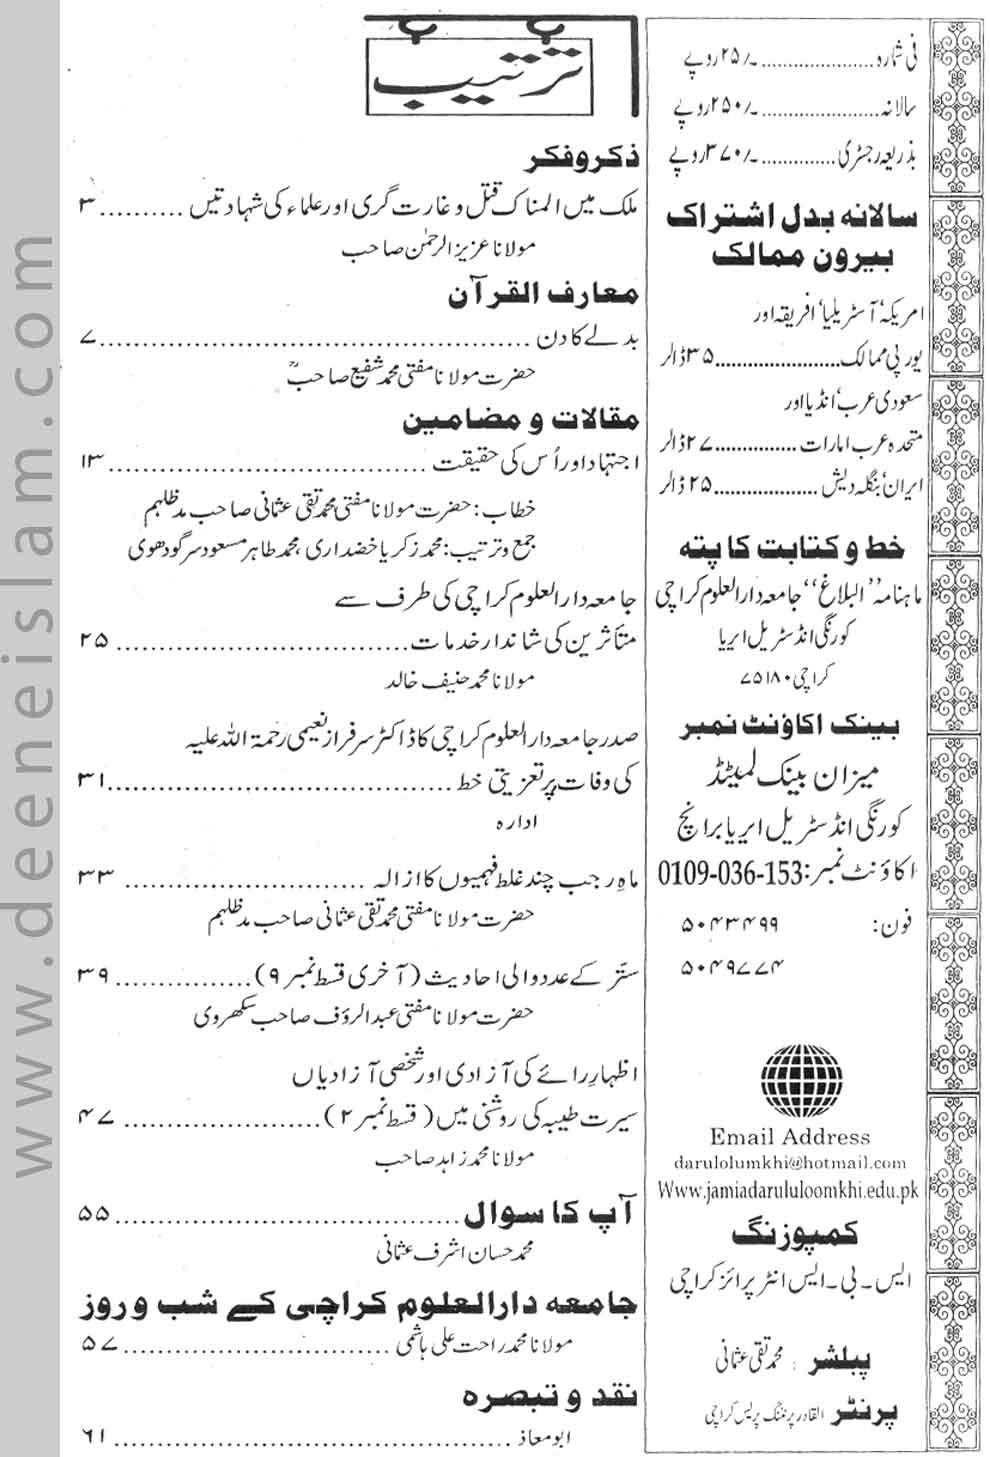 ترتیب
ذکر و فکر
ملک میں المناک قتل و غارت گری اور علماء کی شہادتیں .......... ۳
مولانا عزیز الرحمٰن صاحب
معارف القرآن
بدلے کا دن .......... ۷
حضرت مولانا مفتی محمد شفیع صاحبؒ
مقالات و مضامین
اجتہاد اور اُس کی حقیقت .......... ۱۳
خطاب: حضرت مولانا مفتی محمد تقی عثمانی صاحب مدظلہم
جمع و ترتیب: محمد زکریا خضداری، محمد طاہر مسعود سرگودھوی
جامعہ دارالعلوم کراچی کی طرف سے
متأثرین کی شاندار خدمات .......... ۲۵
مولانا محمد حنیف خالد
صدر جامعہ دارالعلوم کراچی کا ڈاکٹر سرفراز نعیمی رحمۃ اللہ علیہ
کی وفات پر تعزیتی خط .......... ۳۱
ادارہ
ماہِ رجب چند غلط فہمیوں کا ازالہ .......... ۳۳
حضرت مولانا مفتی محمد تقی عثمانی صاحب مدظلہم
ستّر کے عدد والی احادیث (آخری قسط نمبر ۹) .......... ۳۹
حضرت مولانا مفتی عبدالرؤف صاحب سکھروی
اظہارِ رائے کی آزادی اور شخصی آزادیاں
سیرت طیبہ کی روشنی میں (قسط نمبر ۲) .......... ۴۷
مولانا محمد زاہد صاحب
آپ کا سوال .......... ۵۵
محمد حسان اشرف عثمانی
جامعہ دارالعلوم کراچی کے شب و روز
مولانا محمد راحت علی ہاشمی .......... ۵۷
نقد و تبصرہ
ابو معاذ .......... ۶۱
فی شمارہ .......... ۲۵/- روپے
سالانہ .......... ۲۵۰/- روپے
بذریعہ رجسٹری .......... ۳۷۰/- روپے
سالانہ بدل اشتراک
بیرون ممالک
امریکہ، آسٹریلیا، افریقہ اور
یورپی ممالک .......... ۳۵ ڈالر
سعودی عرب، انڈیا اور
متحدہ عرب امارات .......... ۲۷ ڈالر
ایران، بنگلہ دیش .......... ۲۵ ڈالر
خط و کتابت کا پتہ
ماہنامہ ’’البلاغ‘‘ جامعہ دارالعلوم کراچی
کورنگی انڈسٹریل ایریا
کراچی ۷۵۱۸۰
بینک اکاؤنٹ نمبر
میزان بینک لمیٹڈ
کورنگی انڈسٹریل ایریا برانچ
اکاؤنٹ نمبر: 0109-036-153
فون: ۵۰۴۳۴۹۹
۵۰۴۹۷۷۴
Email Address
darulolumkhi@hotmail.com
Www.jamiadarululoomkhi.edu.pk
کمپوزنگ
ایس۔بی۔ایس انٹر پرائز کراچی
پبلشر : محمد تقی عثمانی
پرنٹر القادر پرنٹنگ پریس کراچی
www.deeneislam.com